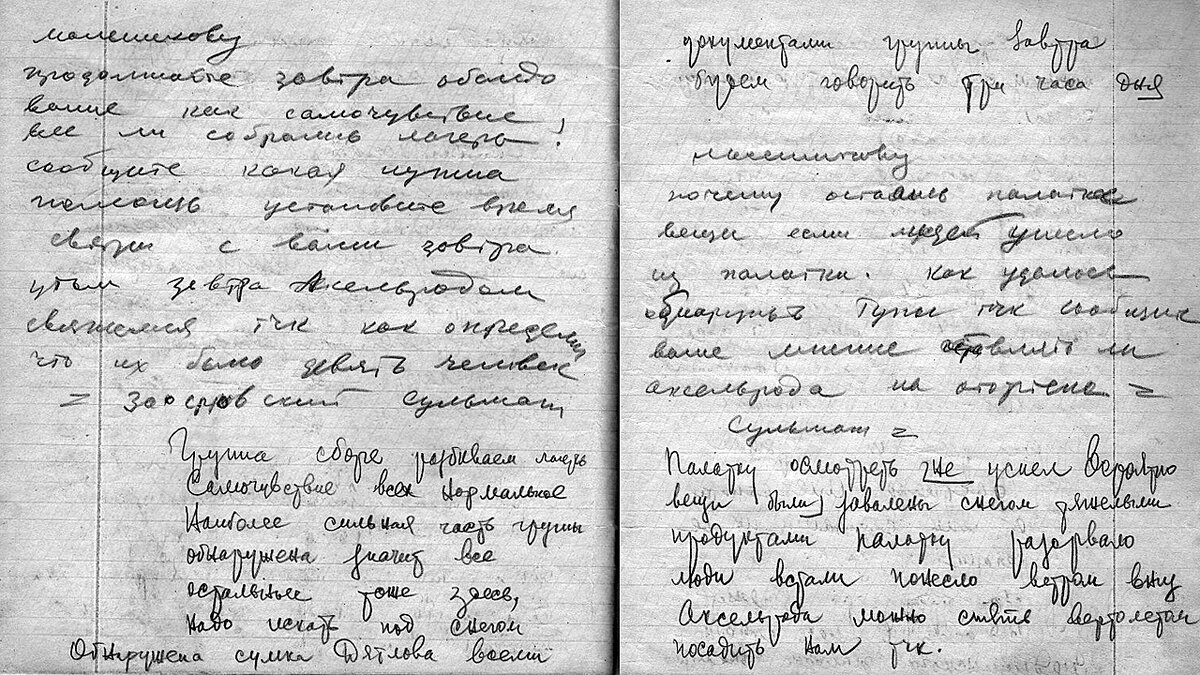 масленикову
продолжайте завтра
ваше как самочувствие,
все ли собрались лагерь.
сообщите какая нужна
помощь установите время
связи с вами завтра
утром завтра Аксельродом
свяжемся тчк как определили
что их было девять человек
= Заостровский Сульман
Группа сборе разбиваем лагерь
Самочувствие всех нормальное
Наиболее сильная часть группы
обнаружена значит все
остальные тоже здесь,
надо искать под снегом
Обнаружена сумка Дятлова всеми
документами группы завтра
будем говорить три часа дня
масленикову
почему остались палатке
вещи если людей унесло
из палатки. как удалось
трупы тчк сообщите
ваше мнение оставлять ли
аксельрода на отортене =
Сульман =
Палатку осмотреть не успел Вероятно
вещи были завалены снегом тяжелыми
продуктами палатку разорвало
люди встали понесло ветром вниз
Аксельрода можно снять вертолетом
посадить нам тчк.